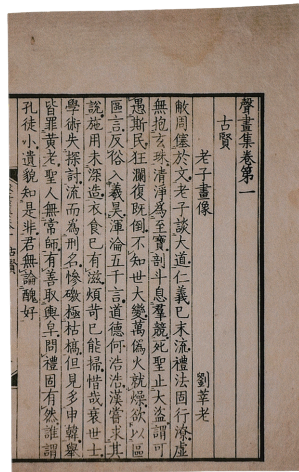 聲畫集卷第一
古賢
老子畫像 劉莘老
敝周僿於文老子談大道仁義已末流禮法固行潦虛
無抱玄珠清淨為至寶剖斗息羣競死聖止大盜謂可
愚斯民狂瀾復既倒不知世大變萬偽火就燥欲以區
區言反俗入羲昊渾淪五千言道德何浩浩漢嘗求其
說施用未深造衣食已有滋煩苛已能掃惜哉衰世士
學術失探討流而為刑名慘礉極枯槁但見多申韓舉
皆罪黃老聖人無常師有善取輿皁問禮固有然誰謂
孔徒小遺貌知是非君無論醜好